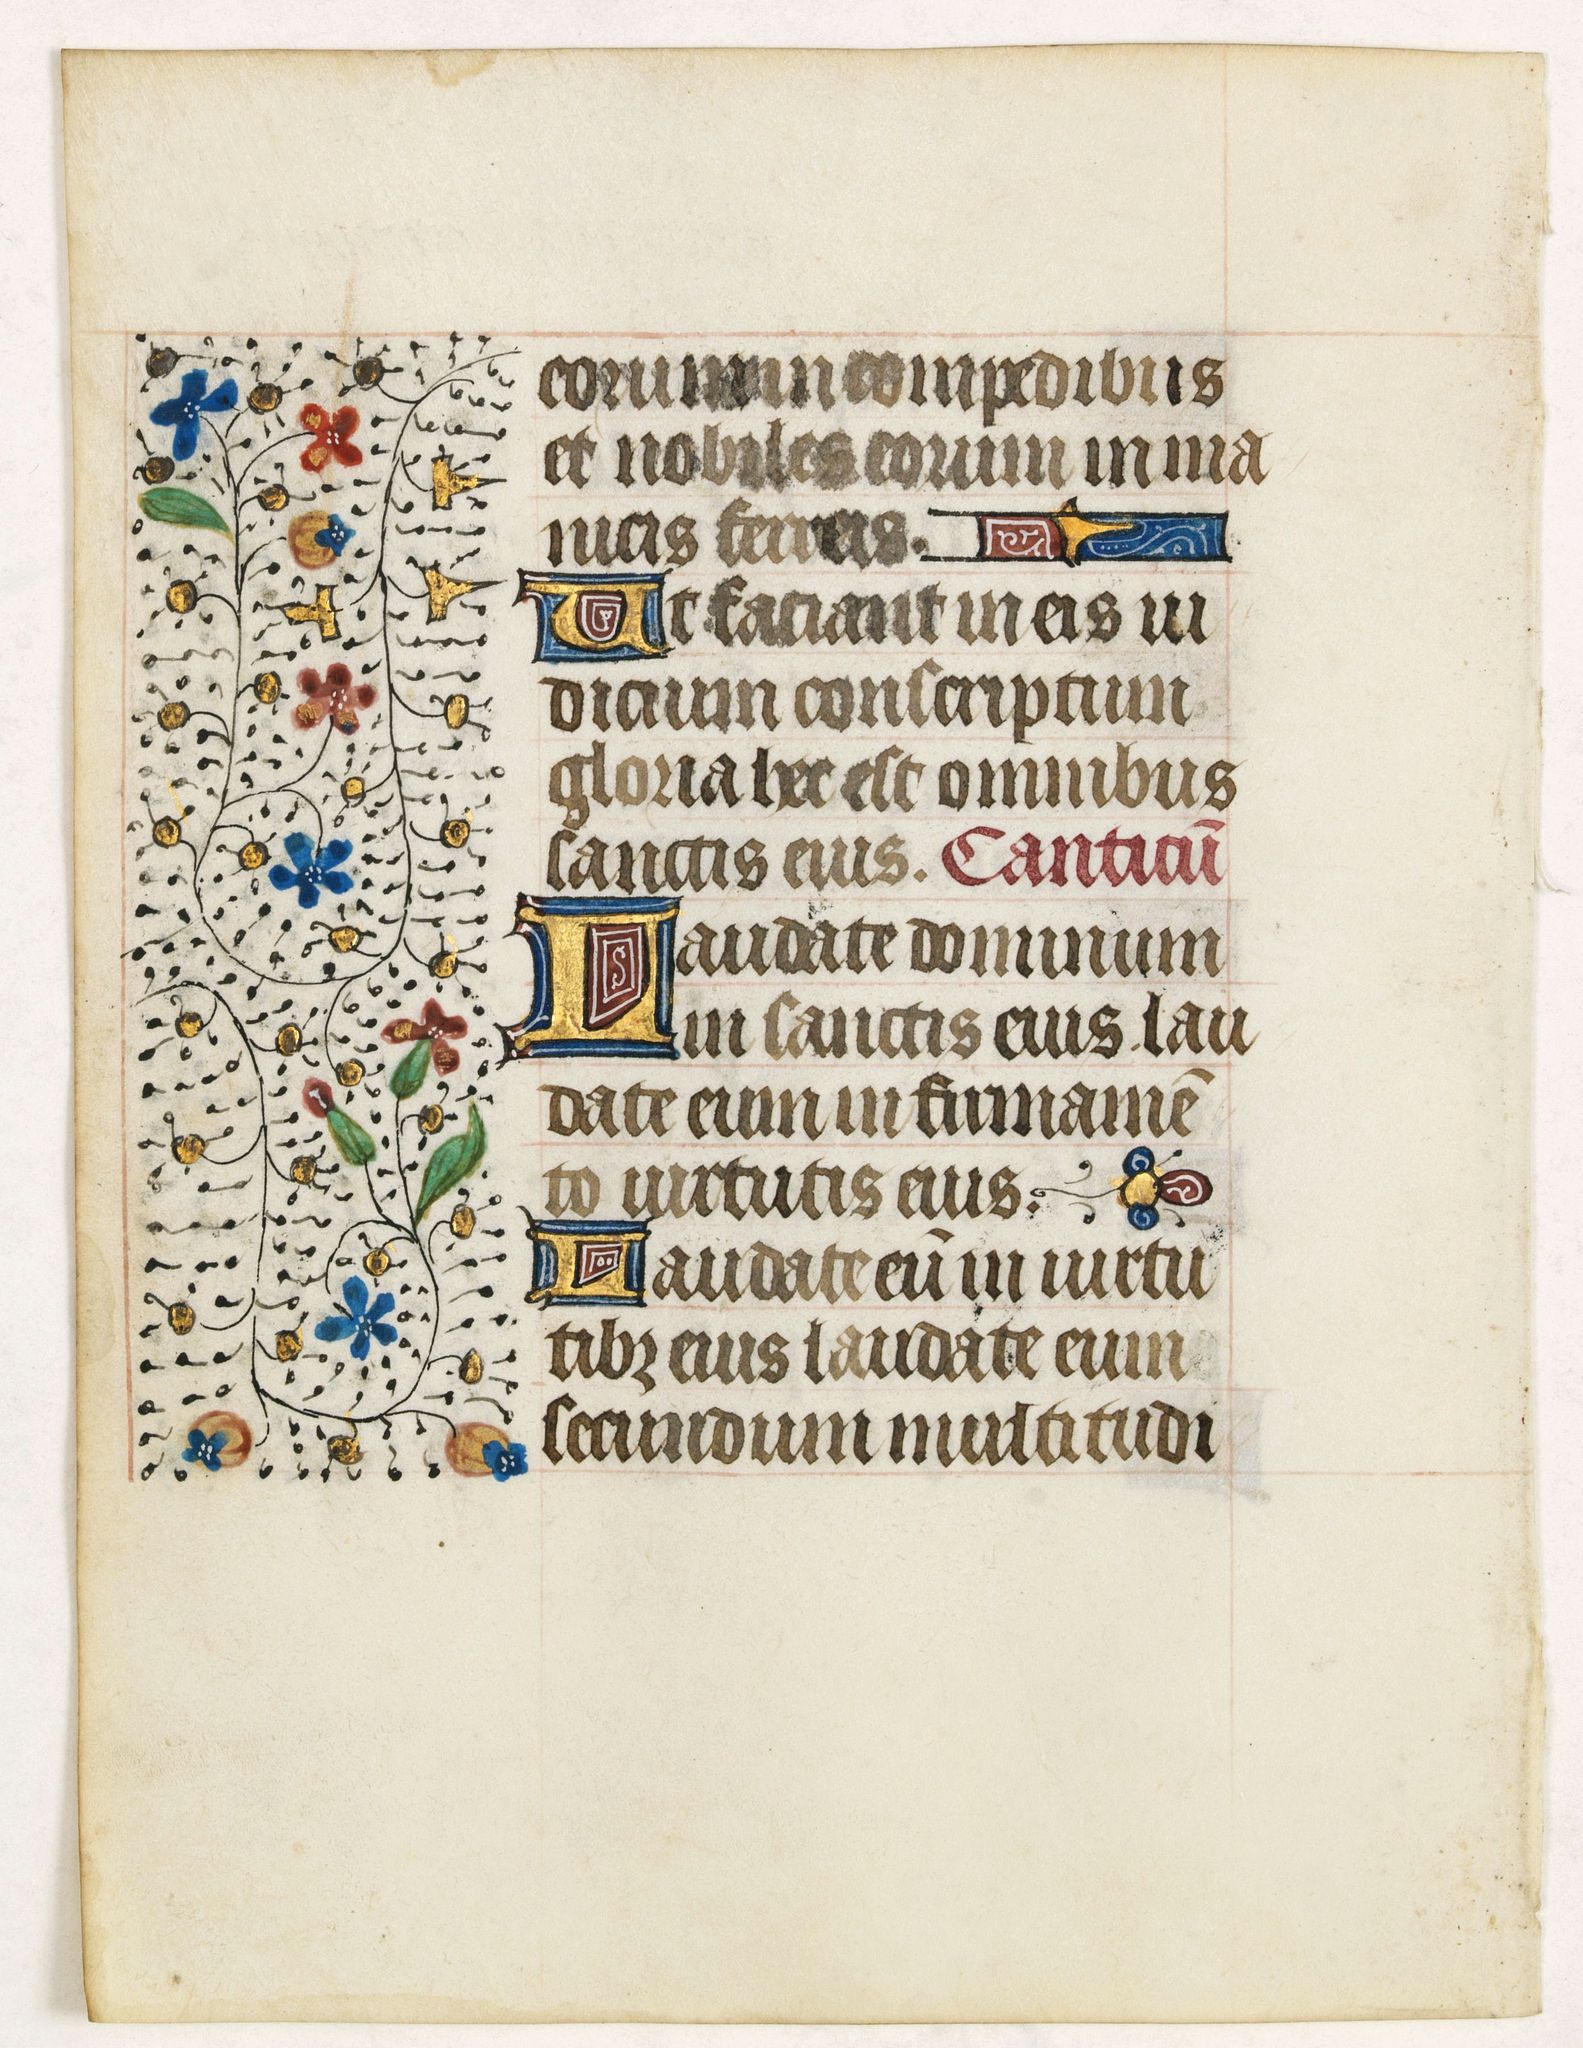 eorum in compedibus
et nobiles eorum in ma
nicis ferreis.
Ut faciant in eis iu
dicium conscriptum
gloria hec est omnibus
sanctis eius. Canticū
Laudate dominum
in sanctis eius lau
date eum in firmamē
to uirtutis eius.
Laudate eū in uirtu
tibꝫ eius laudate eum
secundum multitudi